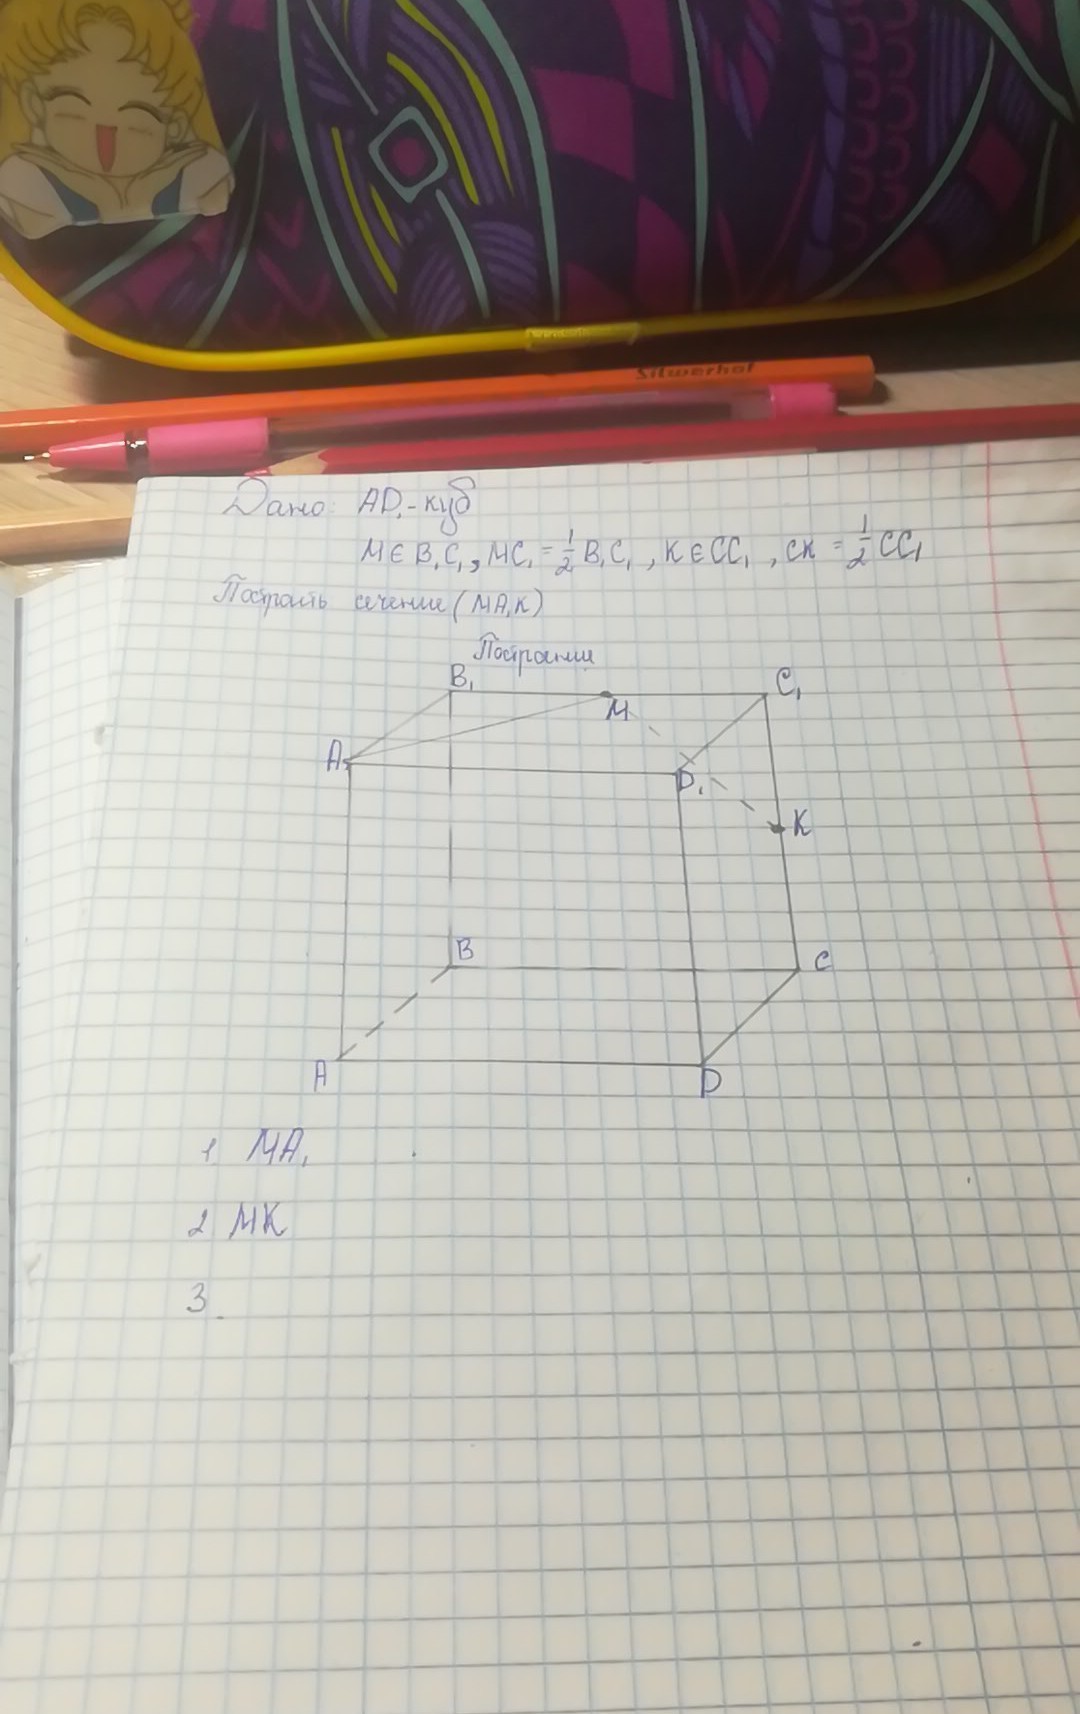 Silwerhof
Дано: AD₁ - куб
M ∈ B₁C₁, MC₁ = 1/2 B₁C₁, K ∈ CC₁, CK = 1/2 CC₁
Построить сечение (MA₁K)
Построение
B₁ M C₁
A₁ D₁
K
B C
A D
1 MA₁
2 MK
3